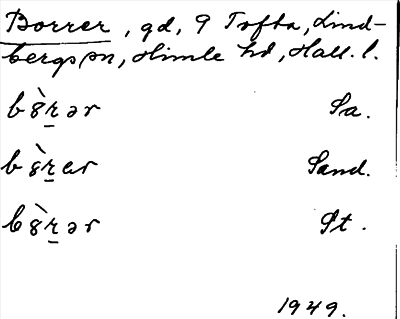 Borrer, gd, 9 Tofta, Lind-
bergs sn, Himle hd, Hall. l.
b8̀r̲ər Sa.
b8̀r̲er Sand.
b8̀r̲ər St.
1949.